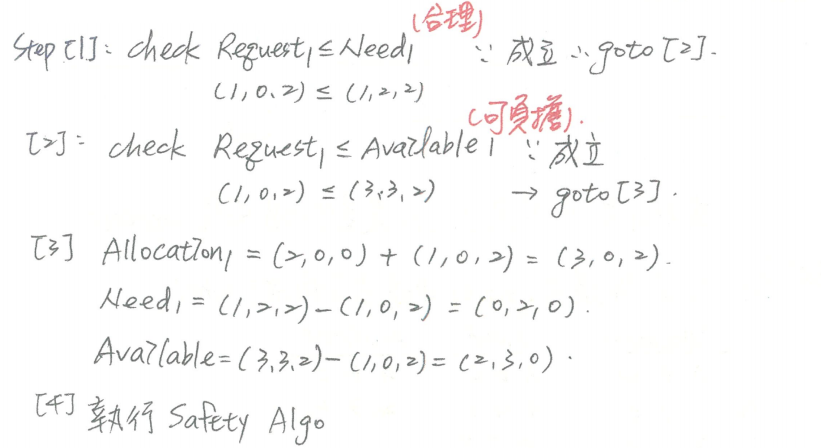 (合理)
Step [1]: check Request₁ ≤ Need₁ ∵ 成立 ∴ goto [2].
(1, 0, 2) ≤ (1, 2, 2)
(可負擔).
[2]: check Request₁ ≤ Available₁ ∵ 成立
(1, 0, 2) ≤ (3, 3, 2) → goto [3].
[3] Allocation₁ = (2, 0, 0) + (1, 0, 2) = (3, 0, 2).
Need₁ = (1, 2, 2) - (1, 0, 2) = (0, 2, 0).
Available = (3, 3, 2) - (1, 0, 2) = (2, 3, 0).
[4] 執行 Safety Algo